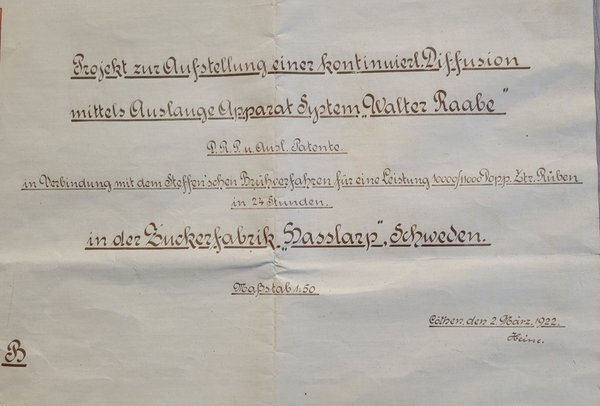 Projekt zur Aufstellung einer kontinuierl. Diffusion
mittels Auslauge Apparat System „Walter Raabe"
D.R.P. u. Ausl. Patente.
in Verbindung mit dem Steffen'schen Brühverfahren, für eine Leistung 10000/11000 Dopp. Ztr. Rüben
in 24 Stunden.
in der Zuckerfabrik „Hasslarp", Schweden.
Maßstab 1:50
Cöthen, den 2. März. 1922.
Heine.
B